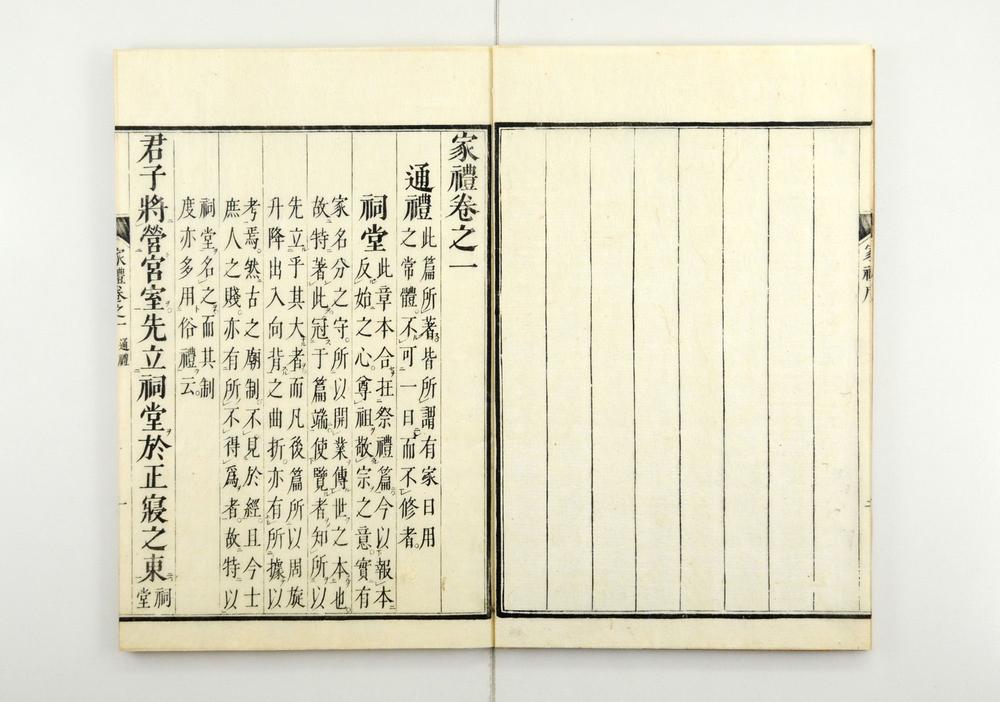 家禮序
家禮卷之一
通禮此篇所著皆所謂有家日用
之常體。不可一日而不修者。
祠堂此章本合扗祭禮篇。今以報本
反始之心。尊祖敬宗之意。實有
家名分之守。所以開業傳世之本也。
故特著此冠于篇端。使覽者知所以
先立乎其大者。而凡後篇所以周旋
升降出入向背之曲折。亦有所據以
考焉。然古之廟制。不見於經。且今士
庶人之賤。亦有所不得爲者。故特以
祠堂名之。而其制
度亦多用俗禮云。
君子將營宮室先立祠堂於正寢之東祠
堂
家禮卷之一 通禮 一